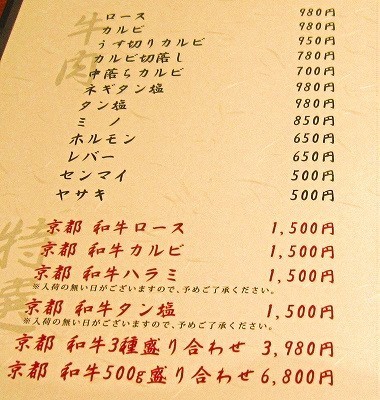 牛肉
ロース 980円
カルビ 980円
うす切りカルビ 950円
カルビ切落し 780円
中落ちカルビ 700円
ネギタン塩 980円
タン塩 980円
ミノ 850円
ホルモン 650円
レバー 650円
センマイ 500円
ヤサキ 500円
特選
京都 和牛ロース 1,500円
京都 和牛カルビ 1,500円
京都 和牛ハラミ 1,500円
※入荷の無い日がございますので、予めご了承ください。
京都 和牛タン塩 1,500円
※入荷の無い日がございますので、予めご了承ください。
京都 和牛3種盛り合わせ 3,980円
京都 和牛500g盛り合わせ 6,800円